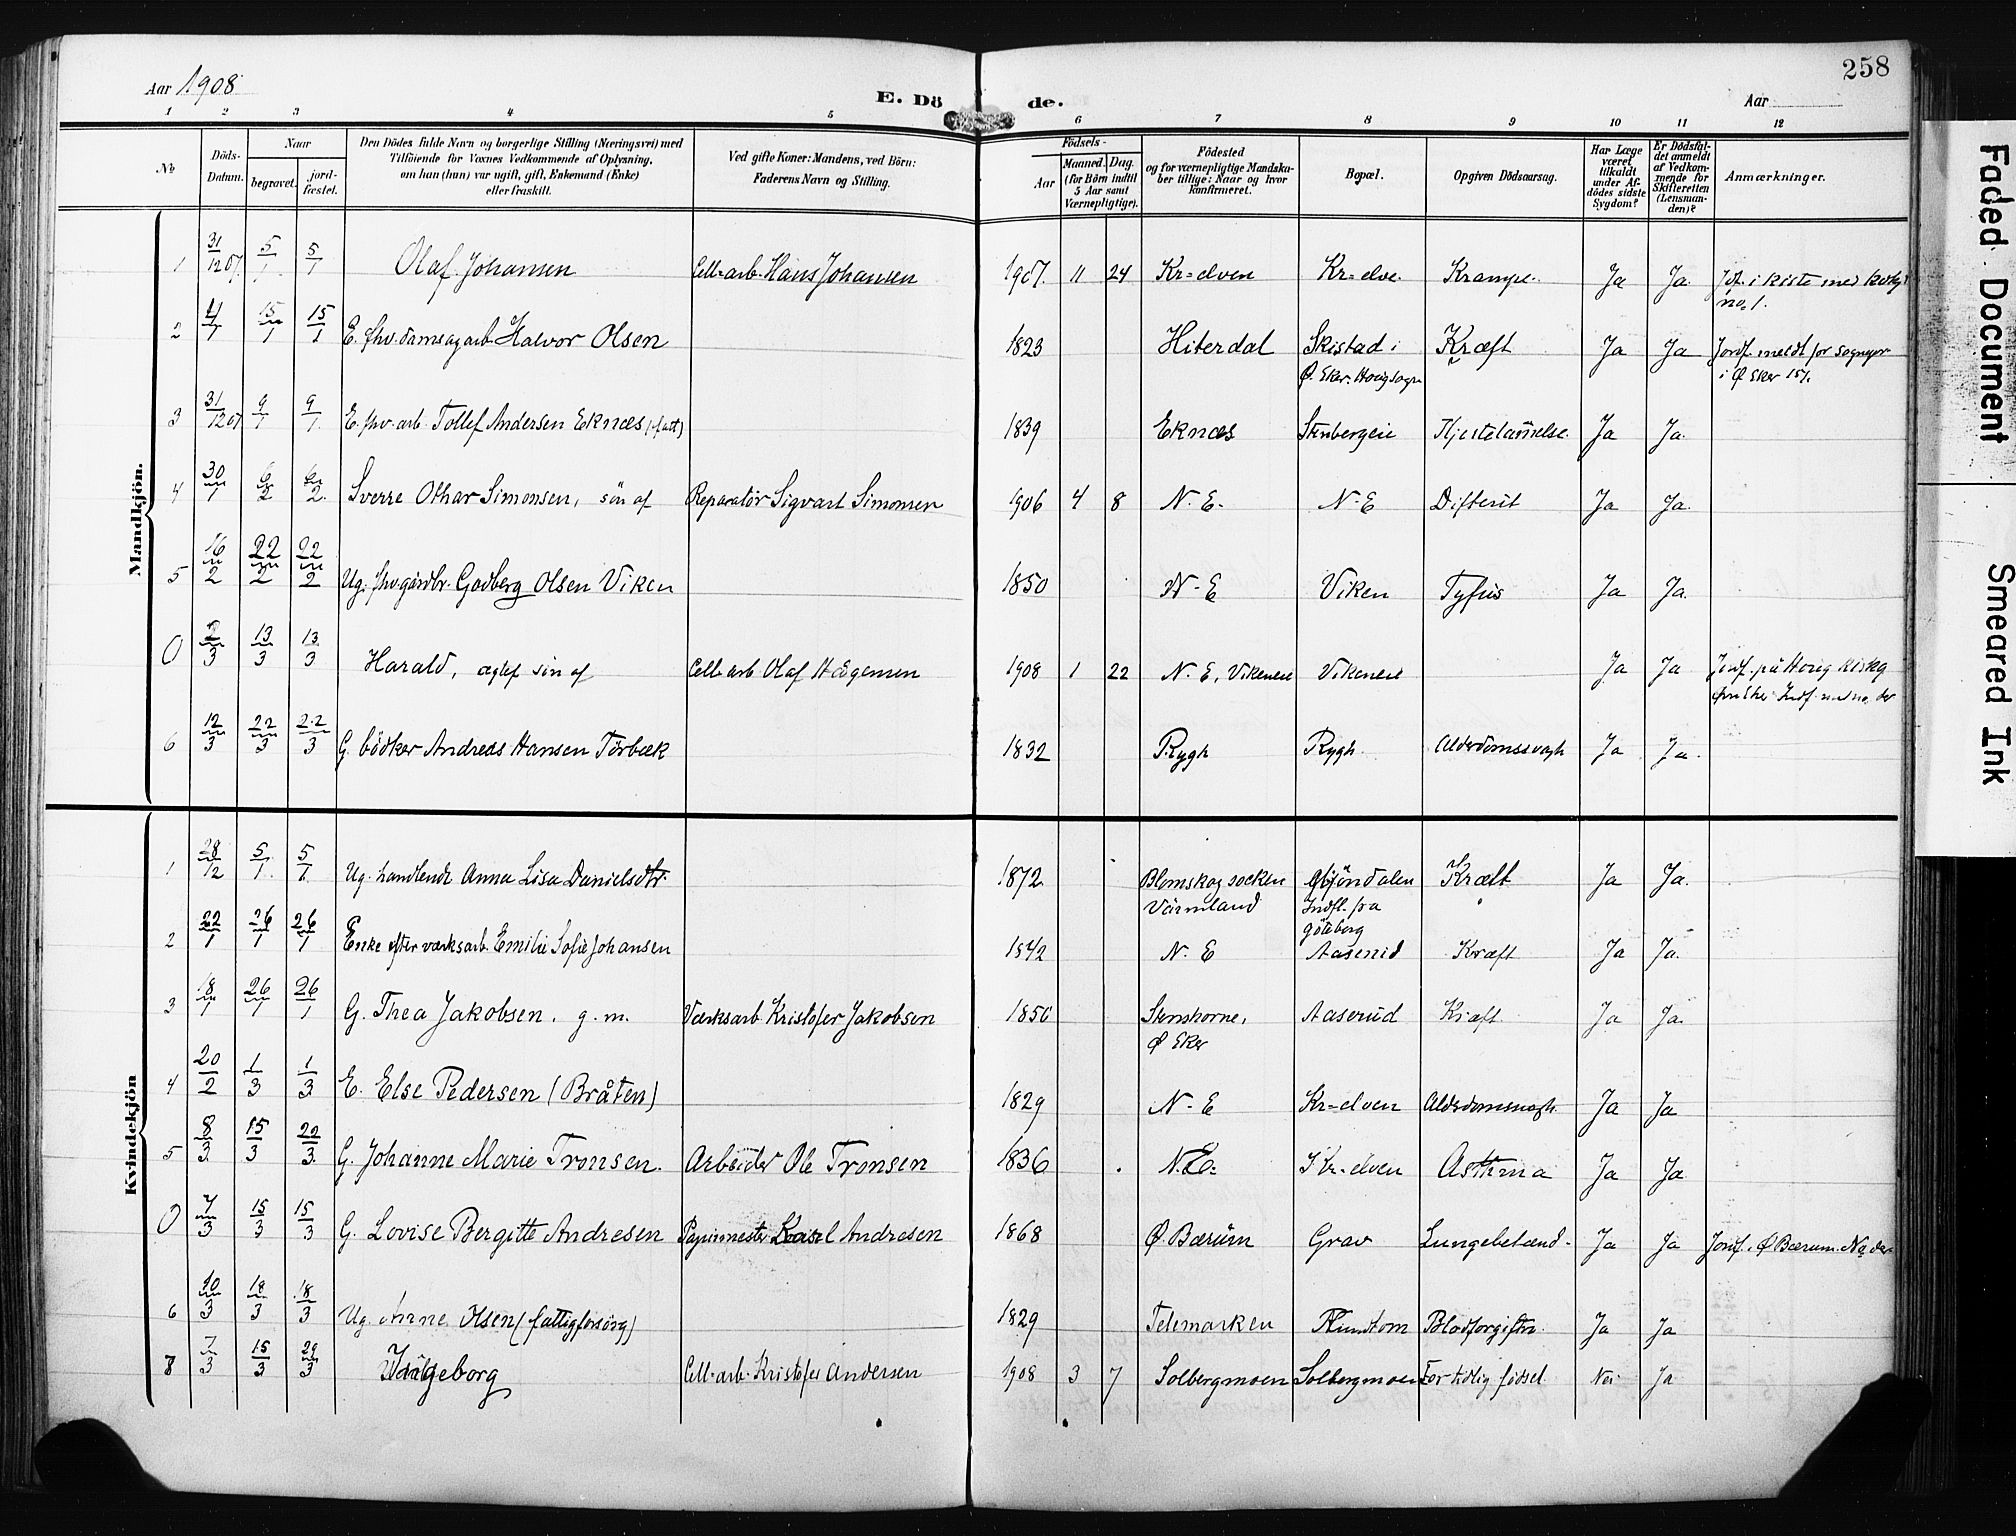 258
Aar 1908
E. Dö de.
Aar
1 2 3 4 5 6 7 8 9 10 11 12
No
Döds-Datum.
Naar
begravet.
jord-fæstet.
Den Dödes fulde Navn og borgerlige Stilling (Næringsvei) med
Tilföiende for Voxnes Vedkommende af Oplysning,
om han (hun) var ugift, gift, Enkemand (Enke)
eller fraskilt.
Ved gifte Koner: Mandens, ved Börn:
Faderens Navn og Stilling.
Födsels-
Aar
Maaned. Dag.
(for Börn indtil
5 Aar samt
Værnepligtige).
Födested
og for værnepligtige Mandska-
ber tillige: Naar og hvor
konfirmeret.
Bopæl.
Opgiven Dödsaarsag.
Har Læge
været
tilkaldt
under Af-
dödes sidste
Sygdom?
Er Dödsfal-
det anmeldt
af Vedkom-
mende for
Skifteretten
(Lensman-
den)?
Anmærkninger.
Mandkjön.
1 31/12 07. 5/1 5/1 Olaf Johansen Cell-arb. Hans Johansen 1907. 11 24 Kr=elven Kr=elve. Krampe. Ja Ja. Jdf. i kiste med
no. 1.
2 4/1 15/1 15/1 E. fhv. damsagarb Halvor Olsen 1823 Hiterdal Skistad i Kræft Ja Ja Jordf. meldt for sognepr
Ø. Eker. Hougsogn i Ø Eker 15/1.
3 31/12 07 9/1 9/1 E. fhv. arb. Tollef Andersen Eknæs (fatt) 1839 Eknæs Stenbergeie Hjertelamelse. Ja Ja.
4 30/1 6/2 6/2 Sverre Othar Simonsen, søn af Reparatör Sigvart Simonsen 1906 4 8 N. E. N-E Difterit Ja Ja.
5 16/2 22/2 22/2 Ug. fhv. gårdbr. Godberg Olsen Viken 1850 N-E Viken Tyfus Ja Ja.
0 2/3 13/3 13/3 Harald, ægtef sön af Cell-arb Olaf Hågensen 1908 1 22 N. E, Vikeneie Vikeneie Ja Ja Jordf. på Houg kirkeg
6 12/3 22/3 22/3 G. bödker Andreas Hansen Torbæk 1832 Rygh Rygh. Alderdomssvagh Ja Ja.
Kvindekjön
1 28/12 5/1 5/1 Ug. handlende Anna Lisa Danielsdtr. 1872 Blomskog socken Mjöndalen Kræft Ja Ja.
Värmland Indfl. fra
Göteborg
2 22/1 26/1 26/1 Enke efter værksarb. Emilie Sofie Johansen 1842 N. E Aaserud Kræft Ja Ja.
3 18/1 26/1 26/1 G. Thea Jakobsen. g. m. Værksarb. Kristofer Jakobsen 1850 Stenshorne, Aaserud Kræft Ja Ja.
Ø Eker
4 20/2 1/3 1/3 E. Else Pedersen (Bråten) 1829 N-E Kr=elven Alderdomssvagh. Ja Ja
5 8/3 15/3 22/3 G. Johanne Marie Tronsen. Arbeider Ole Tronsen 1836 N.E. Kr-elven Asthma Ja Ja
0 7/3 15/3 15/3 G. Lovise Bergitte Andresen Papirmester Karl Andresen 1868 Ø Bærum Grav Lungebetænd. Ja Ja Jordf. Ø Bærum.
6 10/3 18/3 18/3 Ug. Anne Olsen (fattigforsörg) 1829 Telemarken Blodforgiftn. Ja Ja
7 7/3 15/3 29/3 Ingeborg Cell-arb. Kristofer Andersen 1908 3 7 Solbergmoen Solbergmoen For tidlig födsel Nei Ja
Faded Document
Smeared Ink